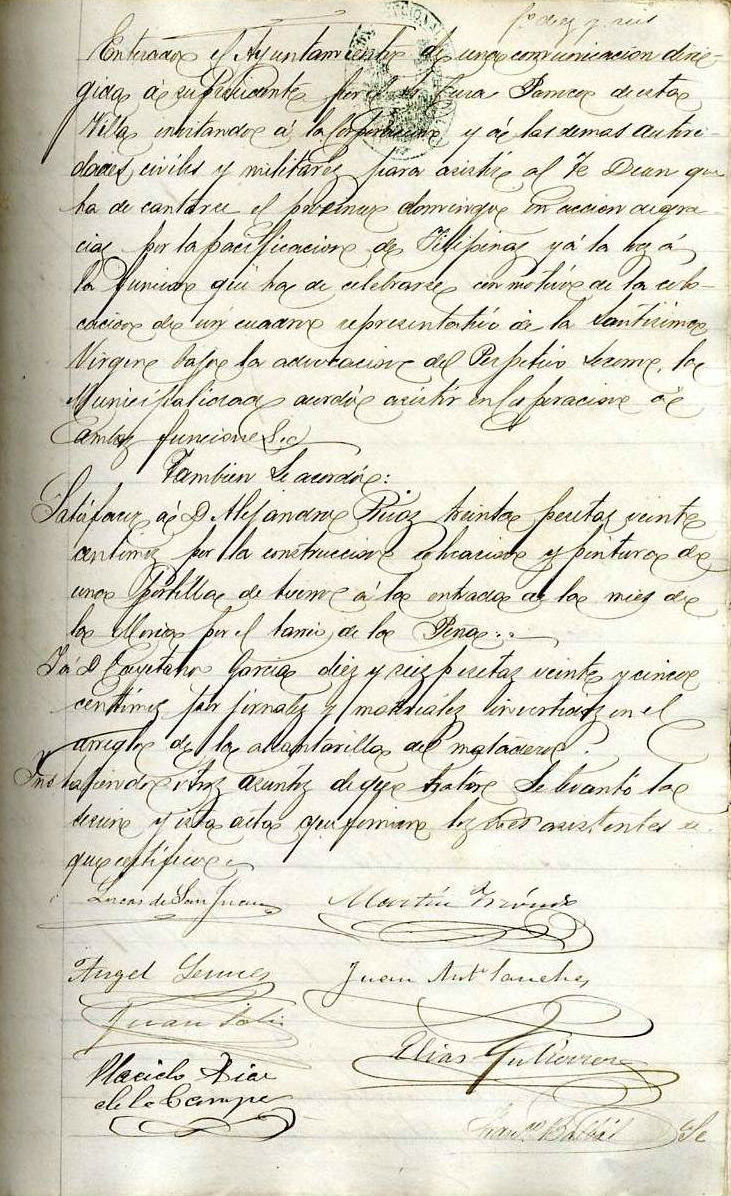 fº diez y seis
Enterado el Ayuntamiento de una comunicacion diri-
gida á su Presidente por el Sr Cura Parroco de esta
Villa invitando á la Corporacion y á las demas autori-
dades civiles y militares para asistir al Te Deun que
ha de cantarse el proximo domingo en accion de gra-
cias por la pacificacion de Filipinas y á la vez á
la funcion que ha de celebrarse con motivo de la colo-
cacion de un cuadro representativo de la Santisima
Virgen bajo la advocacion del Perpetuo Socorro, la
Municipalidad acordó asistir en Corporacion á
ambas funciones
Tambien se acordó:
Satisfacer á D Alejandro Ruiz treinta pesetas veinte
centimos por la construccion colocacion y pintura de
una portilla de hierro á la entrada de la mies de
la por el de la Pena
Y á D Cayetano Garcia diez y seis pesetas veinte y cinco
centimos por jornales y materiales invertidos en el
arreglo de la alcantarilla del matadero.
Y no habiendo otros asuntos de que tratar se levantó la
sesion y esta acta que firman los Sres asistentes de
que certifico
Lucas de San Juan Martin
Angel Juan Antº Sanchez
Juan Elias Gutierrez
Placido Diaz
de la Campa
Franco Balbás Sº